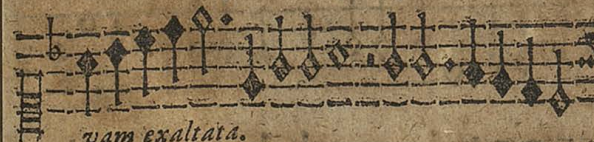 vam exaltata.